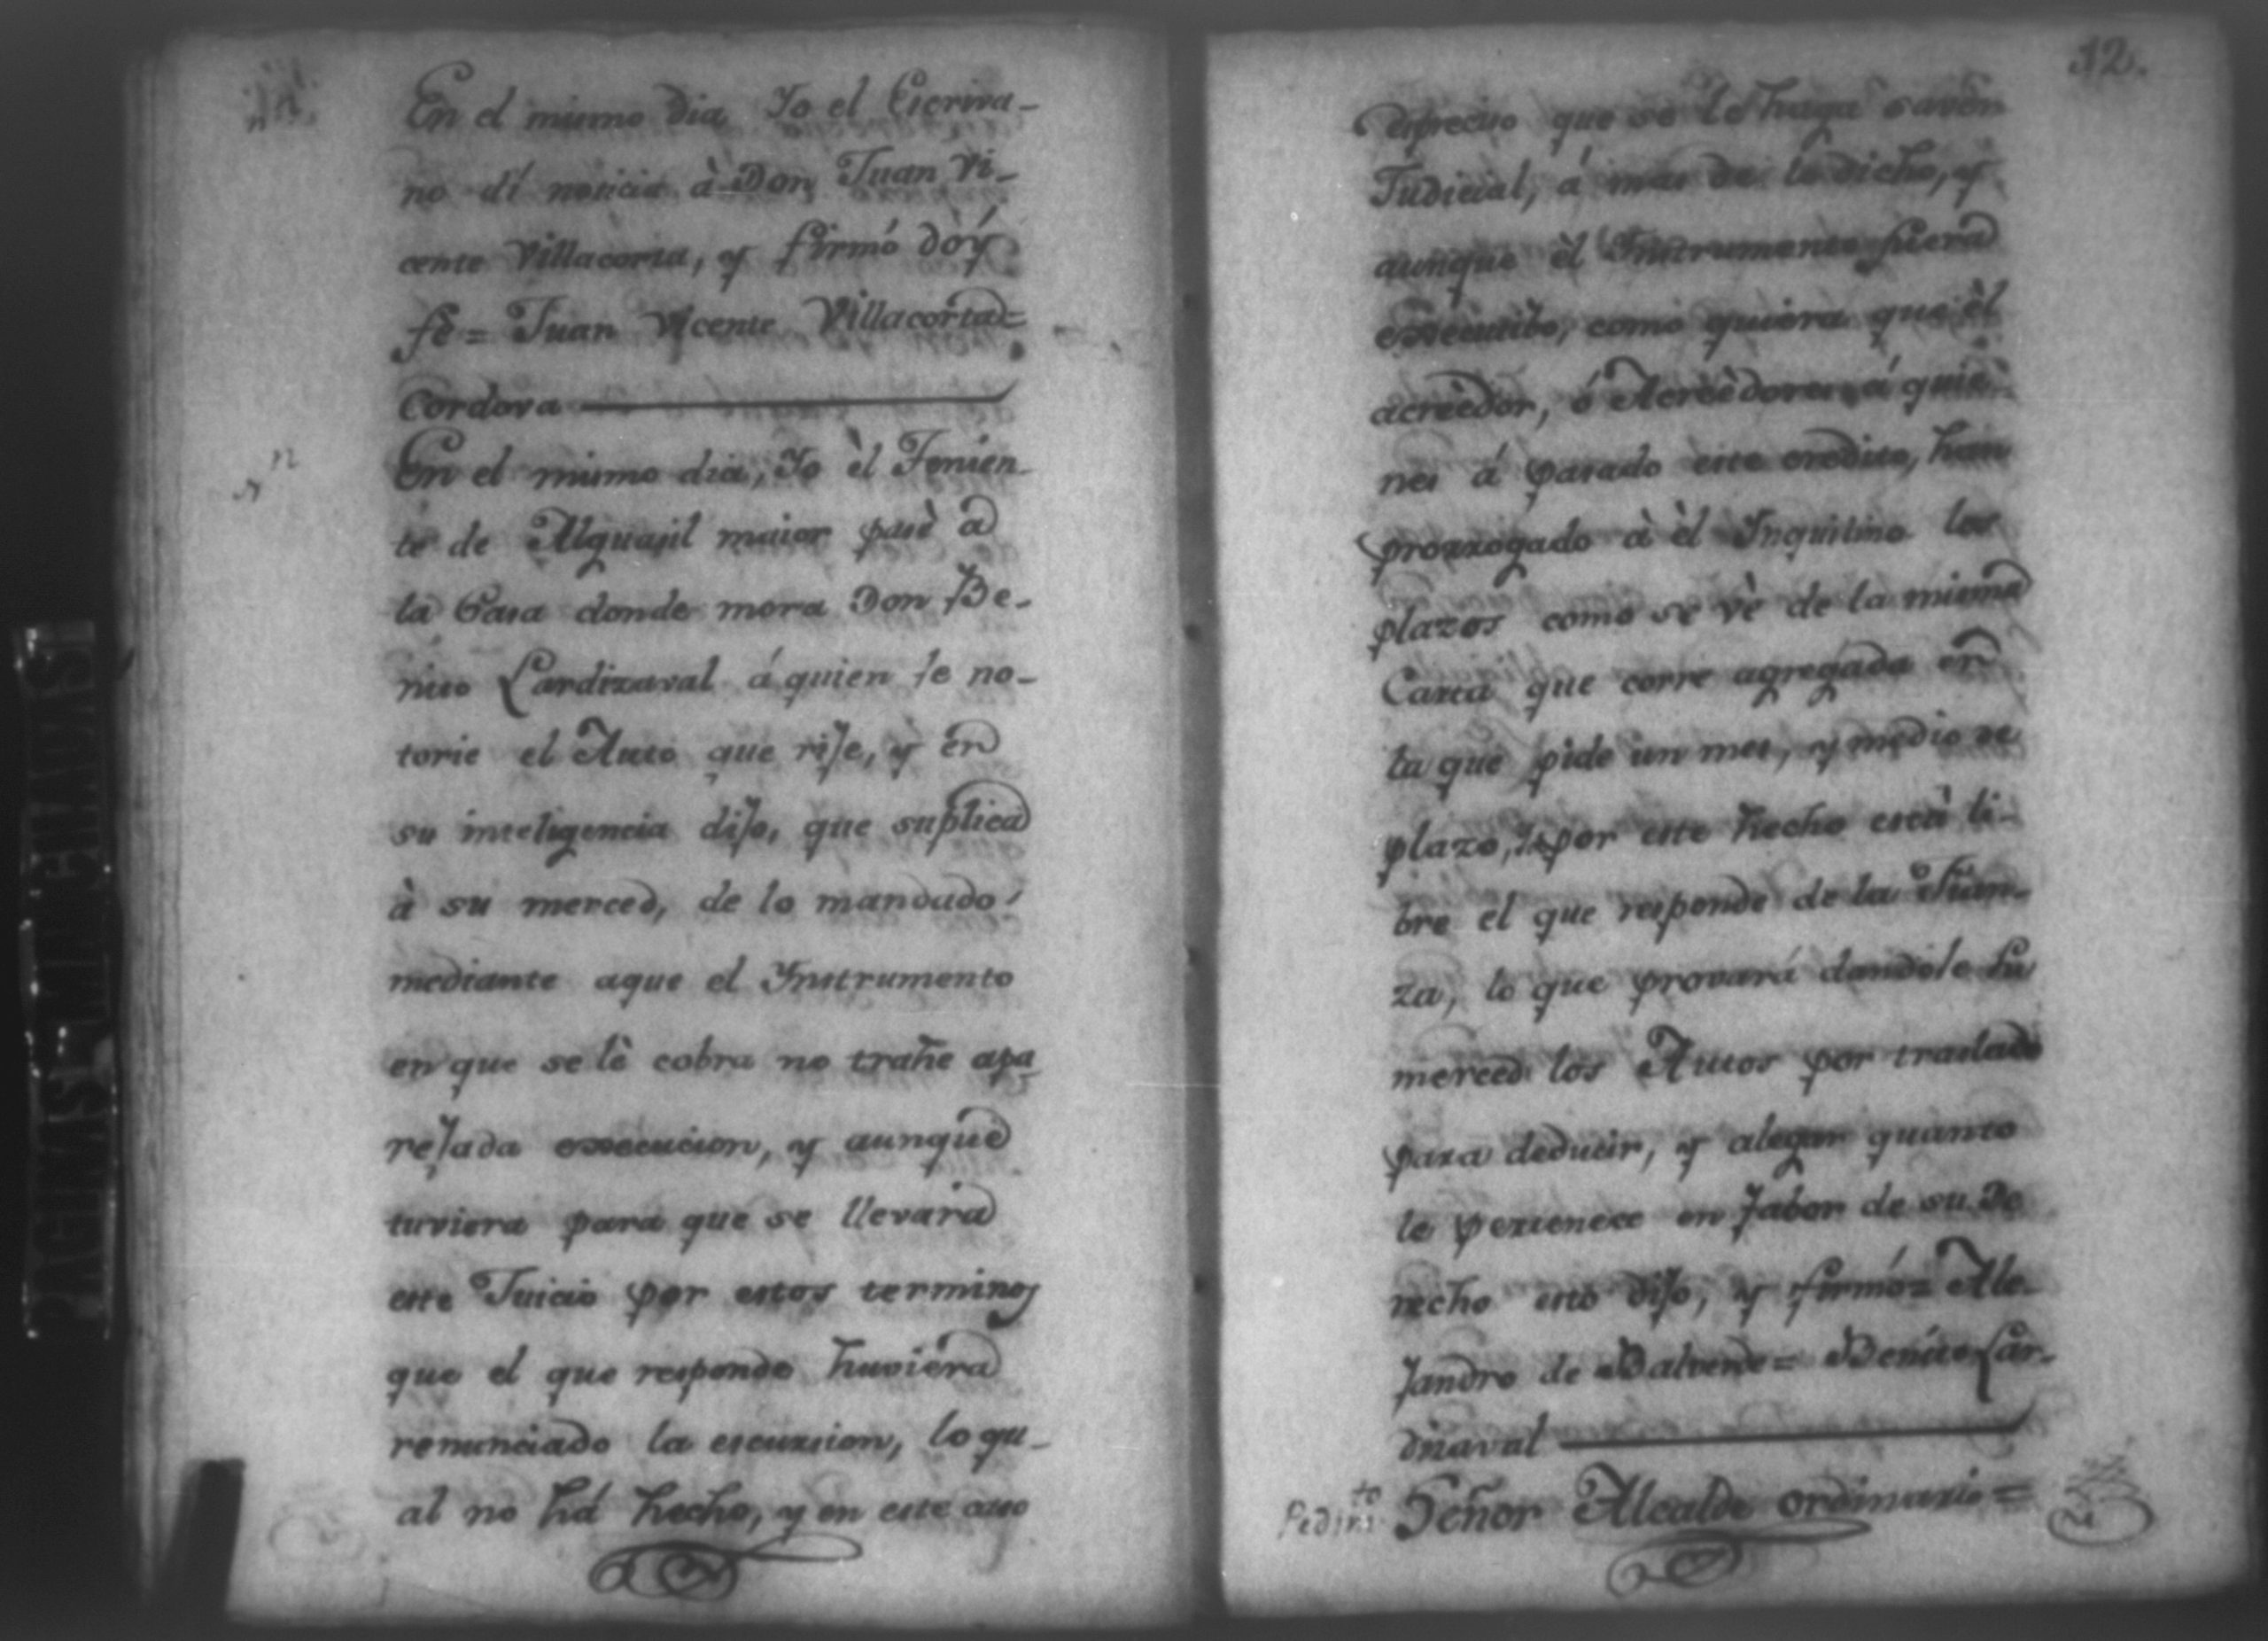 En el mismo dia Yo el Escriva-
no dí noticia à Don Juan Vi-
cente Villacorta, y firmó dòy
fè = Juan Vicente Villacorta =
Cordova
En el mismo dia, Yo èl Tenien-
te de Alguasil maior pasè a
la Casa donde mora Don Be-
nito Lardizaval á quien le no-
torie el Auto que rije, y en
su inteligencia dijo, que suplica
à su merced, de lo mandado
mediante aque el Ynstrumento
en que se lè cobra no trahe apa
rejada execucion, y aunque
tuviera para que se llevara
este Juicio por estos terminos
que el que responde huviera
renunciado la escursion, lo qu-
al no há hecho, y en este caso
12.
espreciso que se le haga saver
Judicial, á mas de lo dicho, y
aunque èl Ynstrumento fuera
executibo, como quiera que èl
acreedor, ó Acreèdores á quie-
nes á pasado este credito, han
prorrogado à èl Inquilino los
plazos como se vè de la misma
Carta que corre agregada en
la que pide un mes, y medio de
plazo, por este hecho està li-
bre el que responde de la Fian-
za, lo que provará dandole su
merced los Autos por traslado
para deducir, y alegar quanto
le pertenece en fabor de su De
recho esto dijo, y firmó = Ale-
jandro de Balverde = Benito Lar-
dizaval
Pedim.to Señor Alcalde ordinario =
PAGINAS ENTREGRAVADAS